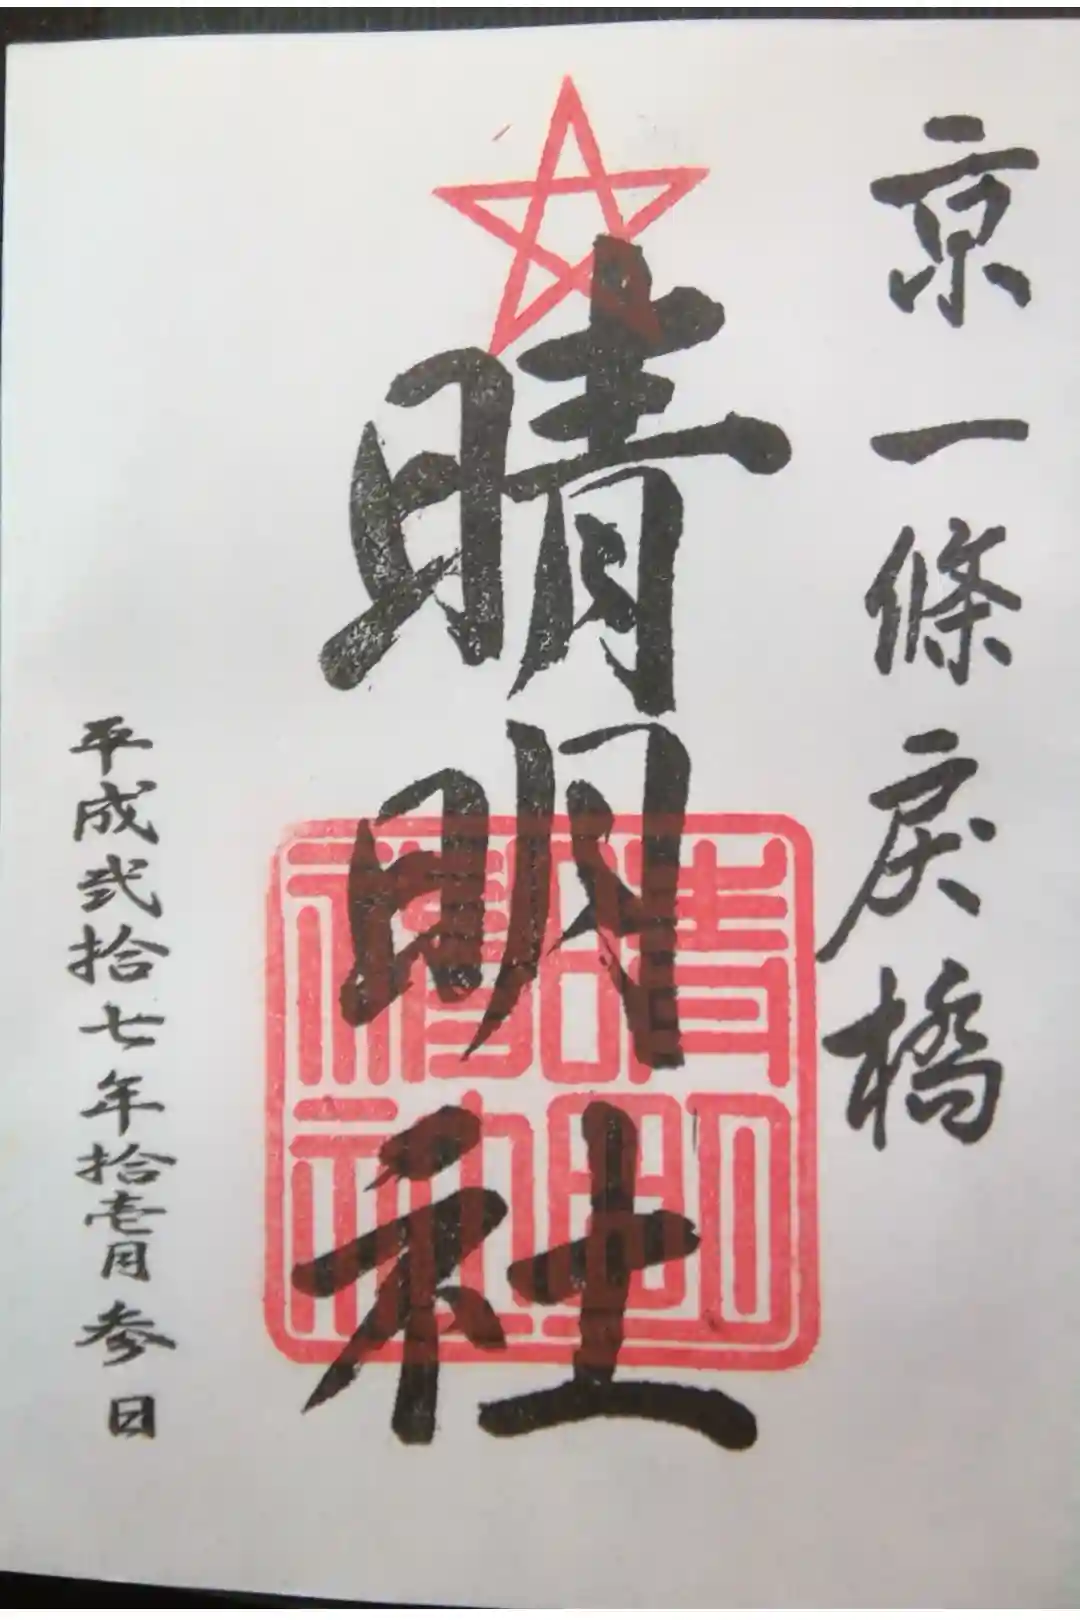 京一條戻橋
晴明社
平成弐拾七年拾壱月参日
晴明神社